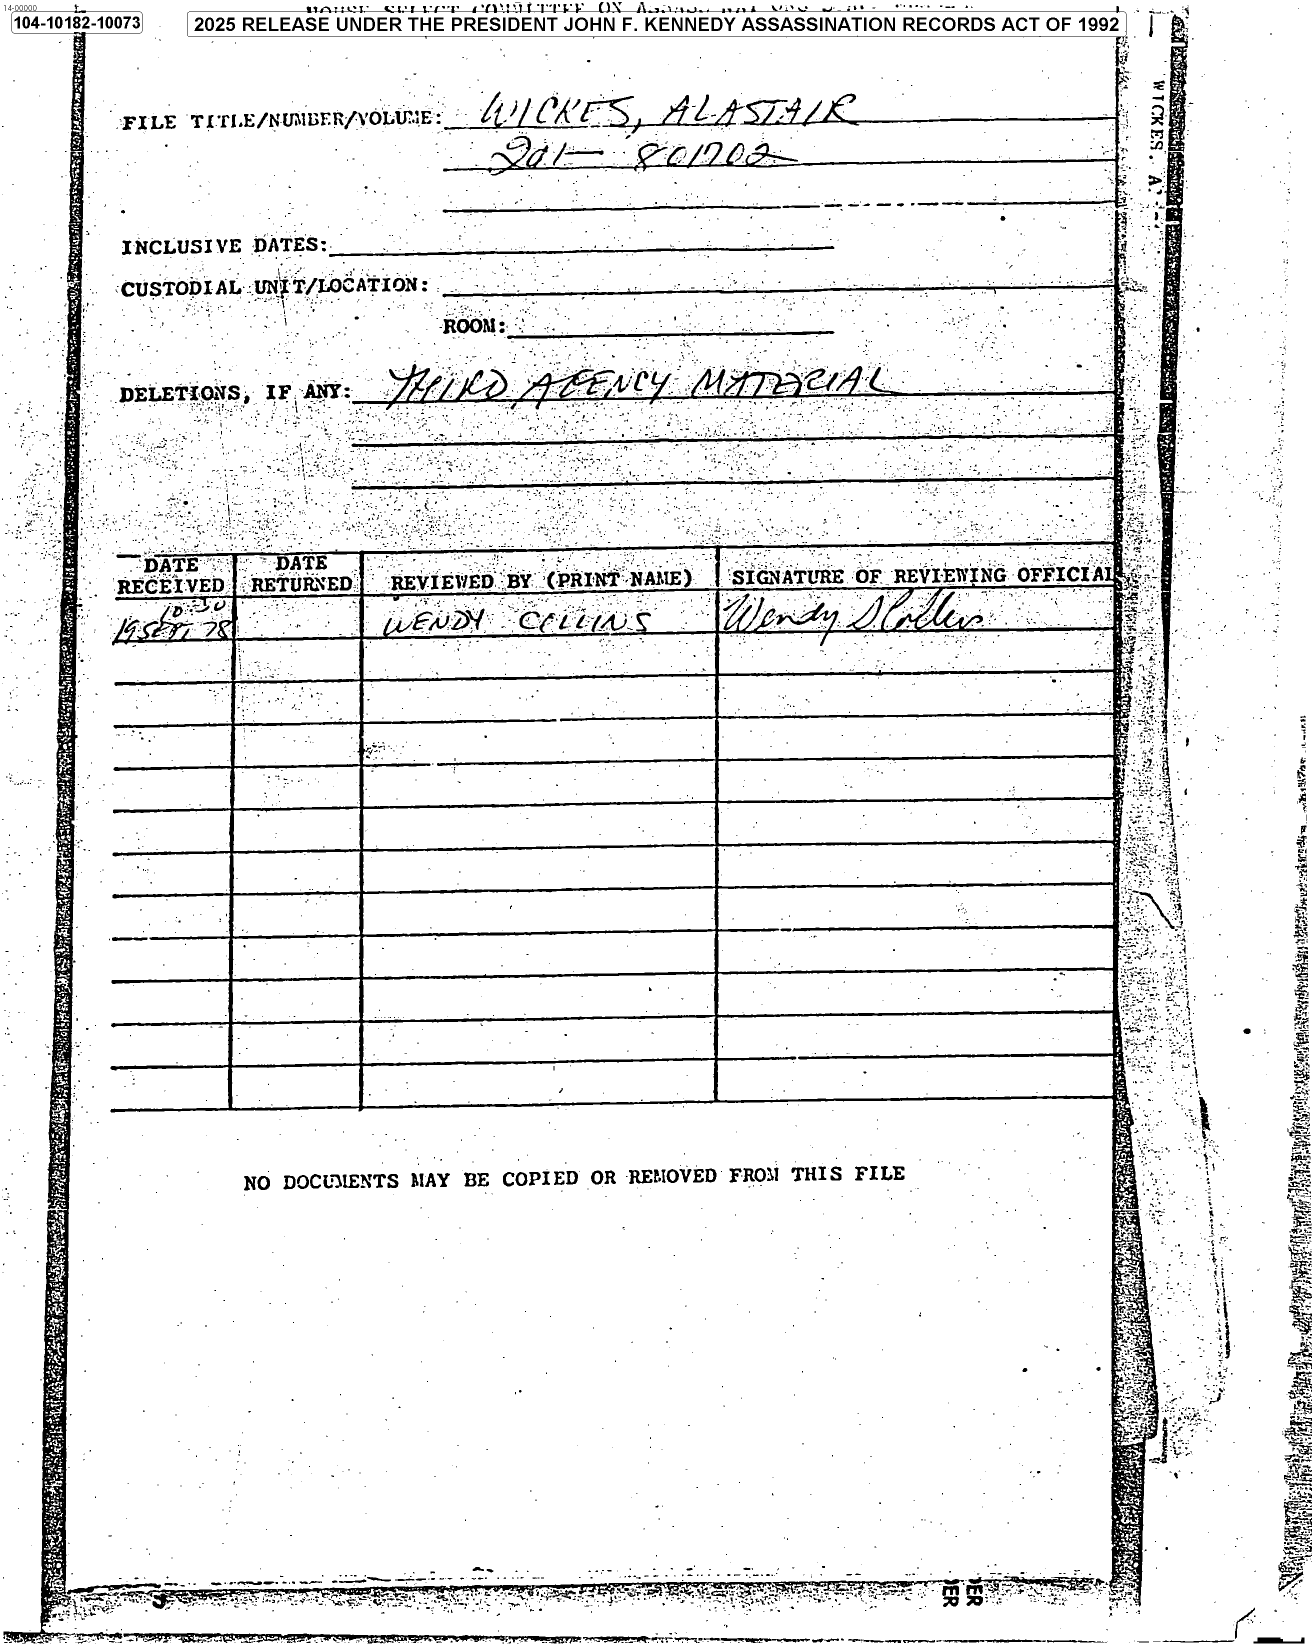 14-00000
104-10182-10073
2025 RELEASE UNDER THE PRESIDENT JOHN F. KENNEDY ASSASSINATION RECORDS ACT OF 1992
HOUSE SELECT COMMITTEE ON
FILE TITLE/NUMBER/VOLUME: WICKES, ALASTAIR
201- 801702
WICKES, A
INCLUSIVE DATES:
CUSTODIAL UNIT/LOCATION:
ROOM:
DELETIONS, IF ANY: THIRD AGENCY MATERIAL
DATE RECEIVED DATE RETURNED REVIEWED BY (PRINT NAME) SIGNATURE OF REVIEWING OFFICIAL
10:30
19 SEPT, 78 WENDY COLLINS Wendy S Collins
NO DOCUMENTS MAY BE COPIED OR REMOVED FROM THIS FILE